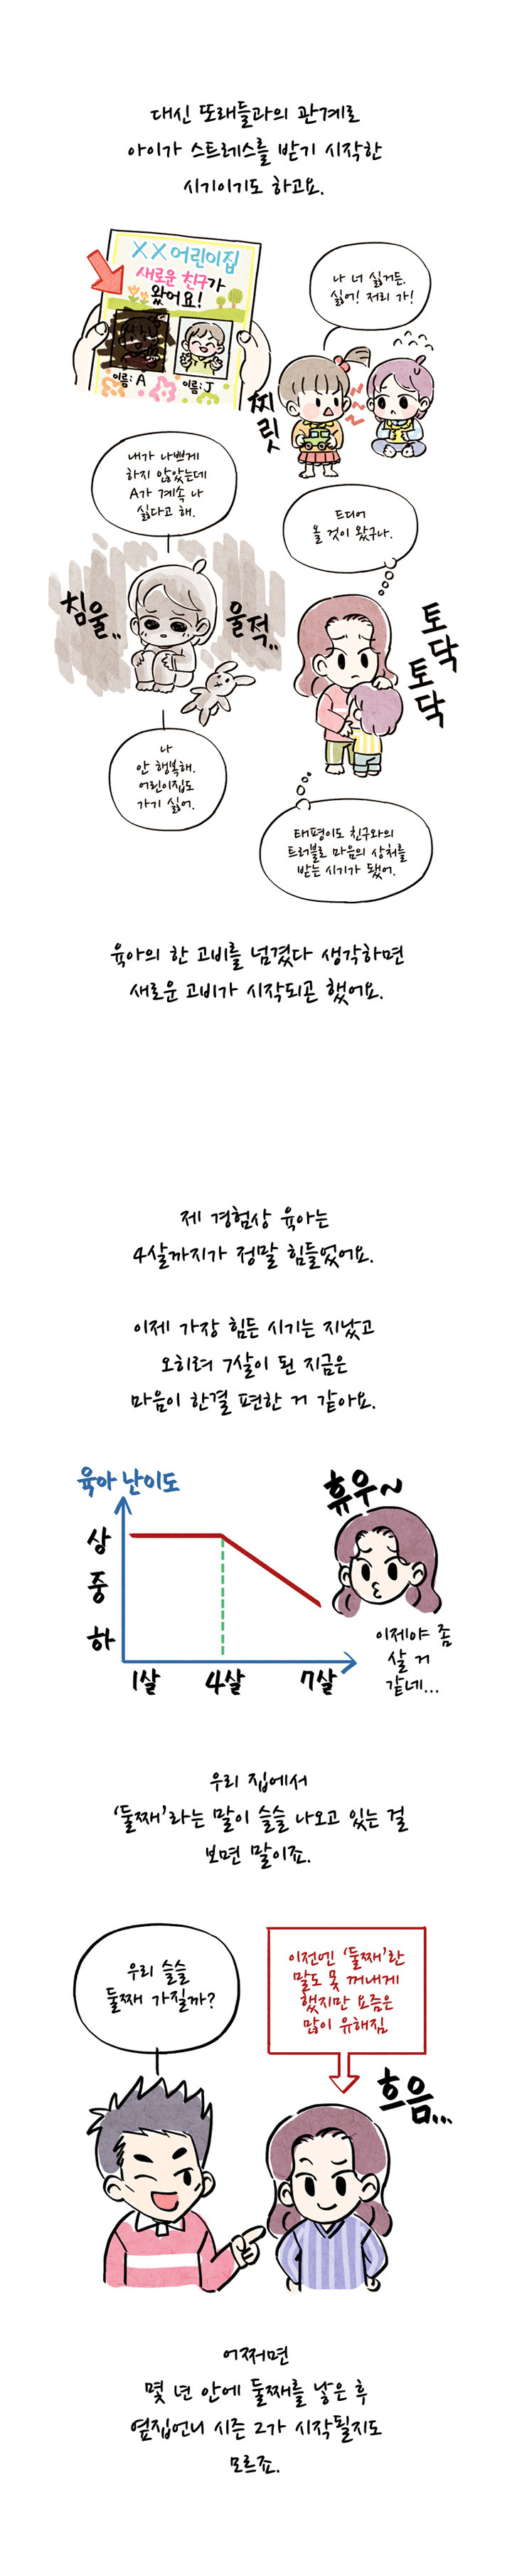 대신 또래들과의 관계로
아이가 스트레스를 받기 시작한
시기이기도 하고요.
XX어린이집
새로운 친구가
왔어요!
이름: A
이름: J
나 너 싫거든.
싫어! 저리 가!
찌릿
내가 나쁘게
하지 않았는데
A가 계속 나
싫다고 해.
드디어
올 것이 왔구나.
침울..
울적..
토닥
토닥
나
안 행복해.
어린이집도
가기 싫어.
태평이도 친구와의
트러블로 마음의 상처를
받는 시기가 됐어.
육아의 한 고비를 넘겼다 생각하면
새로운 고비가 시작되곤 했어요.
제 경험상 육아는
4살까지가 정말 힘들었어요.
이제 가장 힘든 시기는 지났고
오히려 7살이 된 지금은
마음이 한결 편한 거 같아요.
육아 난이도
상
중
하
1살
4살
7살
휴우~
이제야 좀
살 거
같네...
우리 집에서
‘둘째’라는 말이 슬슬 나오고 있는 걸
보면 말이죠.
우리 슬슬
둘째 가질까?
이전엔 ‘둘째’란
말도 못 꺼내게
했지만 요즘은
많이 유해짐
흐음...
어쩌면
몇 년 안에 둘째를 낳은 후
옆집언니 시즌 2가 시작될지도
모르죠.